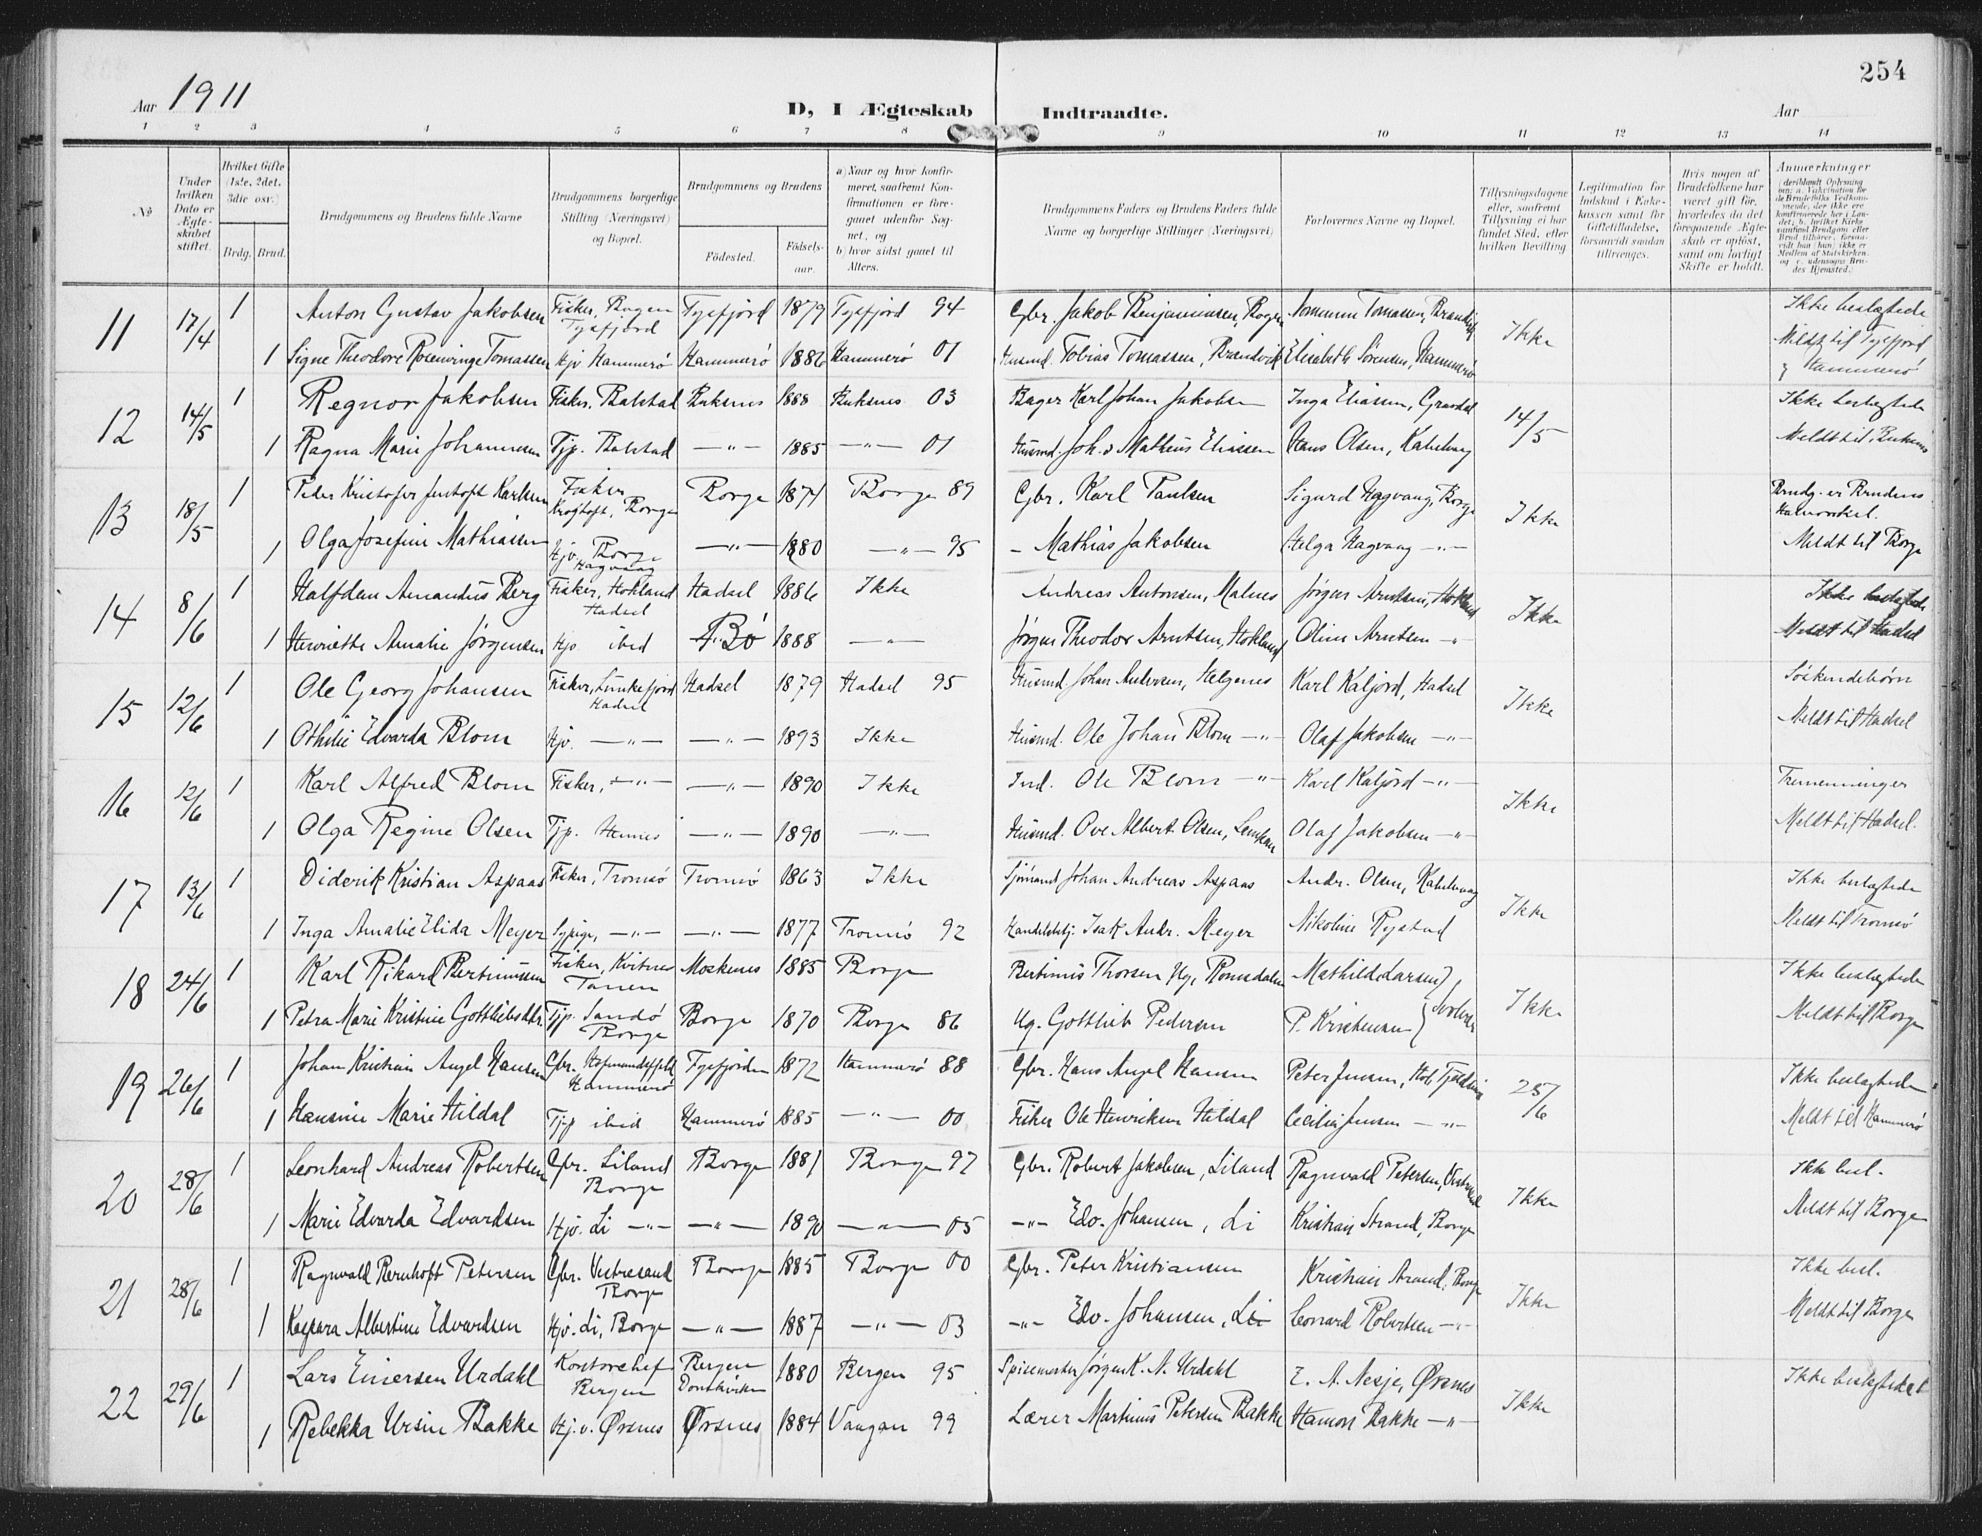 254
Aar 1911
D, I Ægteskab Indtraadte.
Aar
1 2 3 4 5 6 7 8 9 10 11 12 13 14
№
Under hvilken Dato er Ægteskabet stiftet.
Hvilket Gifte (1ste, 2det, 3die osv.)
Brdg. Brud.
Brudgommens og Brudens fulde Navne
Brudgommens borgerlige Stilling (Næringsvei) og Bopæl.
Brudgommens og Brudens
Fødested.
Fødselsaar.
a) Naar og hvor konfirmeret, saafremt Konfirmationen er foregaaet udenfor Sognet, og
b) hvor sidst gaaet til Alters.
Brudgommens Faders og Brudens Faders fulde Navne og borgerlige Stillinger (Næringsvei)
Forlovernes Navne og Bopæl.
Tillysningsdagene eller, saafremt Tillysning ei har fundet Sted, efter hvilken Bevilling
Legitimation for Indskud i Enkekassen samt for Giftetilladelse, forsaavidt saadan tiltrænges.
Hvis nogen af Brudefolkene har været gift før, hvorledes da det foregaaende Ægteskab er opløst, samt om lovligt Skifte er holdt.
Anmærkninger
(deriblandt Oplysning om: a. Vakcination for de Brudefolks Vedkommende, der ikke ere konfirmerede her i Landet; b. hvilket Kirkesamfund Brudgom eller Brud tilhører, forsaavidt han (hun) ikke er Medlem af Statskirken, og c. udensogns Brudes Hjemsted.)
11 17/4 1 Anton Gustav Jakobsen Fisker, Bogen Tysfjord Tysfjord 1879 Tysfjord 94 Gbr. Jakob Benjaminsen, Bogen Tomassen, Ikke Ikke beslægtede
1 Signe Theodore Rosenvinge Tomassen Hjv Hammerö Hammerö 1886 Hammerö 01 Husmd. Tobias Tomassen, Brandvik Elisabeth Sørensen, Hammerö Meldt til Tysfjord
Hammerö
12 14/5 1 Regnor Jakobsen Fisker, Balstad Buksnes 1888 Buksnes 03 Bager Karl Johan Jakobsen Inga Eliassen, Gravdal 14/5 Ikke beslægtede
1 Ragna Marie Johannesen Tjp. Balstad —"— 1885 —"— 01 Husmd. Joh.s Matheus Eliassen Hans Olsen, Kabelvaag Meldt til Buksnes
13 18/5 1 Peter Kristofer Karlsen Fisker Borge Borge 1874 Borge 89 Gbr. Karl Paulsen Sigurd Hagvaag, Borge Ikke Brudg. er Brudens
1 Olga Josefine Mathiassen Hjv. Borge Hagvaag —"— 1880 —"— 95 — Mathias Jakobsen Helga Hagvaag —"— Meldt til Borge
14 8/6 1 Halfdan Amandus Berg Fisker, Hokland Hadsel Hadsel 1886 Ikke Andreas Antonsen, Malnes Jørgen Arntsen, Hokland Ikke Ikke beslægtede,
1 Henriette Amalie Jørgensen Hjv. ibid Bö 1888 —"— Jørgen Theodor Arntsen, Hokland Oline Arntsen —"— Meldt til Hadsel
15 12/6 1 Ole Georg Johansen Fisker, Hadsel Hadsel 1879 Hadsel 95 Husmd. Johan Andersen, Helgenes Karl Kaljord, Hadsel Ikke Söskendebörn
1 Othilie Edvarda Blom Hjv. —"— —"— 1893 Ikke Husmd. Ole Johan Blom —"— Olaf Jakobsen —"— Meldt til Hadsel
16 12/6 1 Karl Alfred Blom Fisker, —"— —"— 1890 Ikke Ind. Ole Blom —"— Karl Kaljord —"— Ikke Tremenninger
1 Olga Regine Olsen Tjp. Hennes —"— 1890 —"— Husmd. Ove Albert Olsen, Olaf Jakobsen —"— Meldt til Hadsel.
17 13/6 1 Diderik Kristian Aspaas Fisker, Tromsö Tromsö 1863 Ikke Sjömand Johan Andreas Aspaas Andr. Olsen, Kabelvaag Ikke Ikke beslægtede
1 Inga Amalie Elida Meyer Sypige, —"— —"— 1877 Tromsö 92 Handelsbtj. Isak Andr. Meyer Nikoline Rystad Meldt til Tromsö
18 24/6 1 Karl Rikard Bertinussen Fisker, Moskenes 1885 Borge Bertinus Thorsen Ny, Romsdalen Mathilde Larsen Ikke Ikke beslægtede
1 Petra Marie Kristine Gottliebsdtr. Tjp. Sandö Borge Borge 1870 Borge 86 Ug. Gottlieb Pedersen P. Kristensen Svolvær Meldt til Borge
19 26/6 1 Johan Kristian Angel Hansen Gbr. Hammerö Tysfjorden 1872 Hammerö 88 Gbr. Hans Angel Hansen Peter Jensen, 25/6 Ikke beslægtede
1 Hansine Marie Hildal Tjp ibid Hammerö 1885 —"— 00 Fisker Ole Henriksen Hildal Cecilie Jensen —"— Meldt til Hammerö
20 28/6 1 Leonhard Andreas Robertsen Gbr. Liland Borge Borge 1881 Borge 97 Gbr. Robert Jakobsen, Liland Ragnvald Petersen, Vestresand Ikke Ikke besl.
1 Marie Edvarda Edvardsen Hjv. Li —"— —"— 1890 —"— 05 —"— Edv. Johansen, Li Kristian Strand, Borge Meldt til Borge
21 28/6 1 Ragnvald Bernhoft Petersen Gbr. Vestresand Borge Borge 1885 Borge 00 Gbr. Peter Kristiansen Kristian Strand, Borge Ikke Ikke besl.
1 Kaspara Albertine Edvardsen Hjv. Li, Borge —"— 1887 —"— 03 —"— Edv. Johansen, Li Leonard Robertsen —"— Meldt til Borge
22 29/6 1 Lars Einersen Urdahl Kontorchef Bergen Bergen Domkirken 1880 Bergen 95 Spisemester Jørgen K. N. Urdahl E. A. Nesje, Ørsnes Ikke Ikke beslægtede
1 Rebekka Ursin Bakke Hj.v. Ørsnes Ørsnes 1884 Vaagan 99 Lærer Martinus Petersen Bakke Hamon Bakke —"—